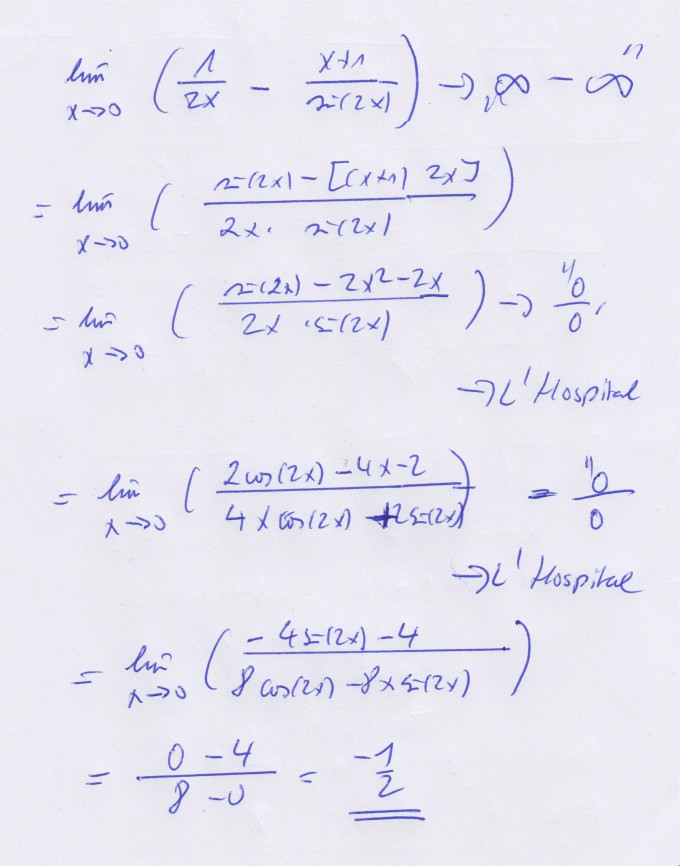 lim x→0 ( 1/2x − x+1/sin(2x) ) → „∞ − ∞"
= lim x→0 ( sin(2x) − [(x+1) 2x] / 2x · sin(2x) )
= lim x→0 ( sin(2x) − 2x² − 2x / 2x · sin(2x) ) → "0/0"
→ L'Hospital
= lim x→0 ( 2cos(2x) − 4x − 2 / 4x cos(2x) + 2sin(2x) ) = "0/0
→ L'Hospital
= lim x→0 ( −4sin(2x) − 4 / 8cos(2x) − 8x sin(2x) )
= 0 − 4 / 8 − 0 = −1/2